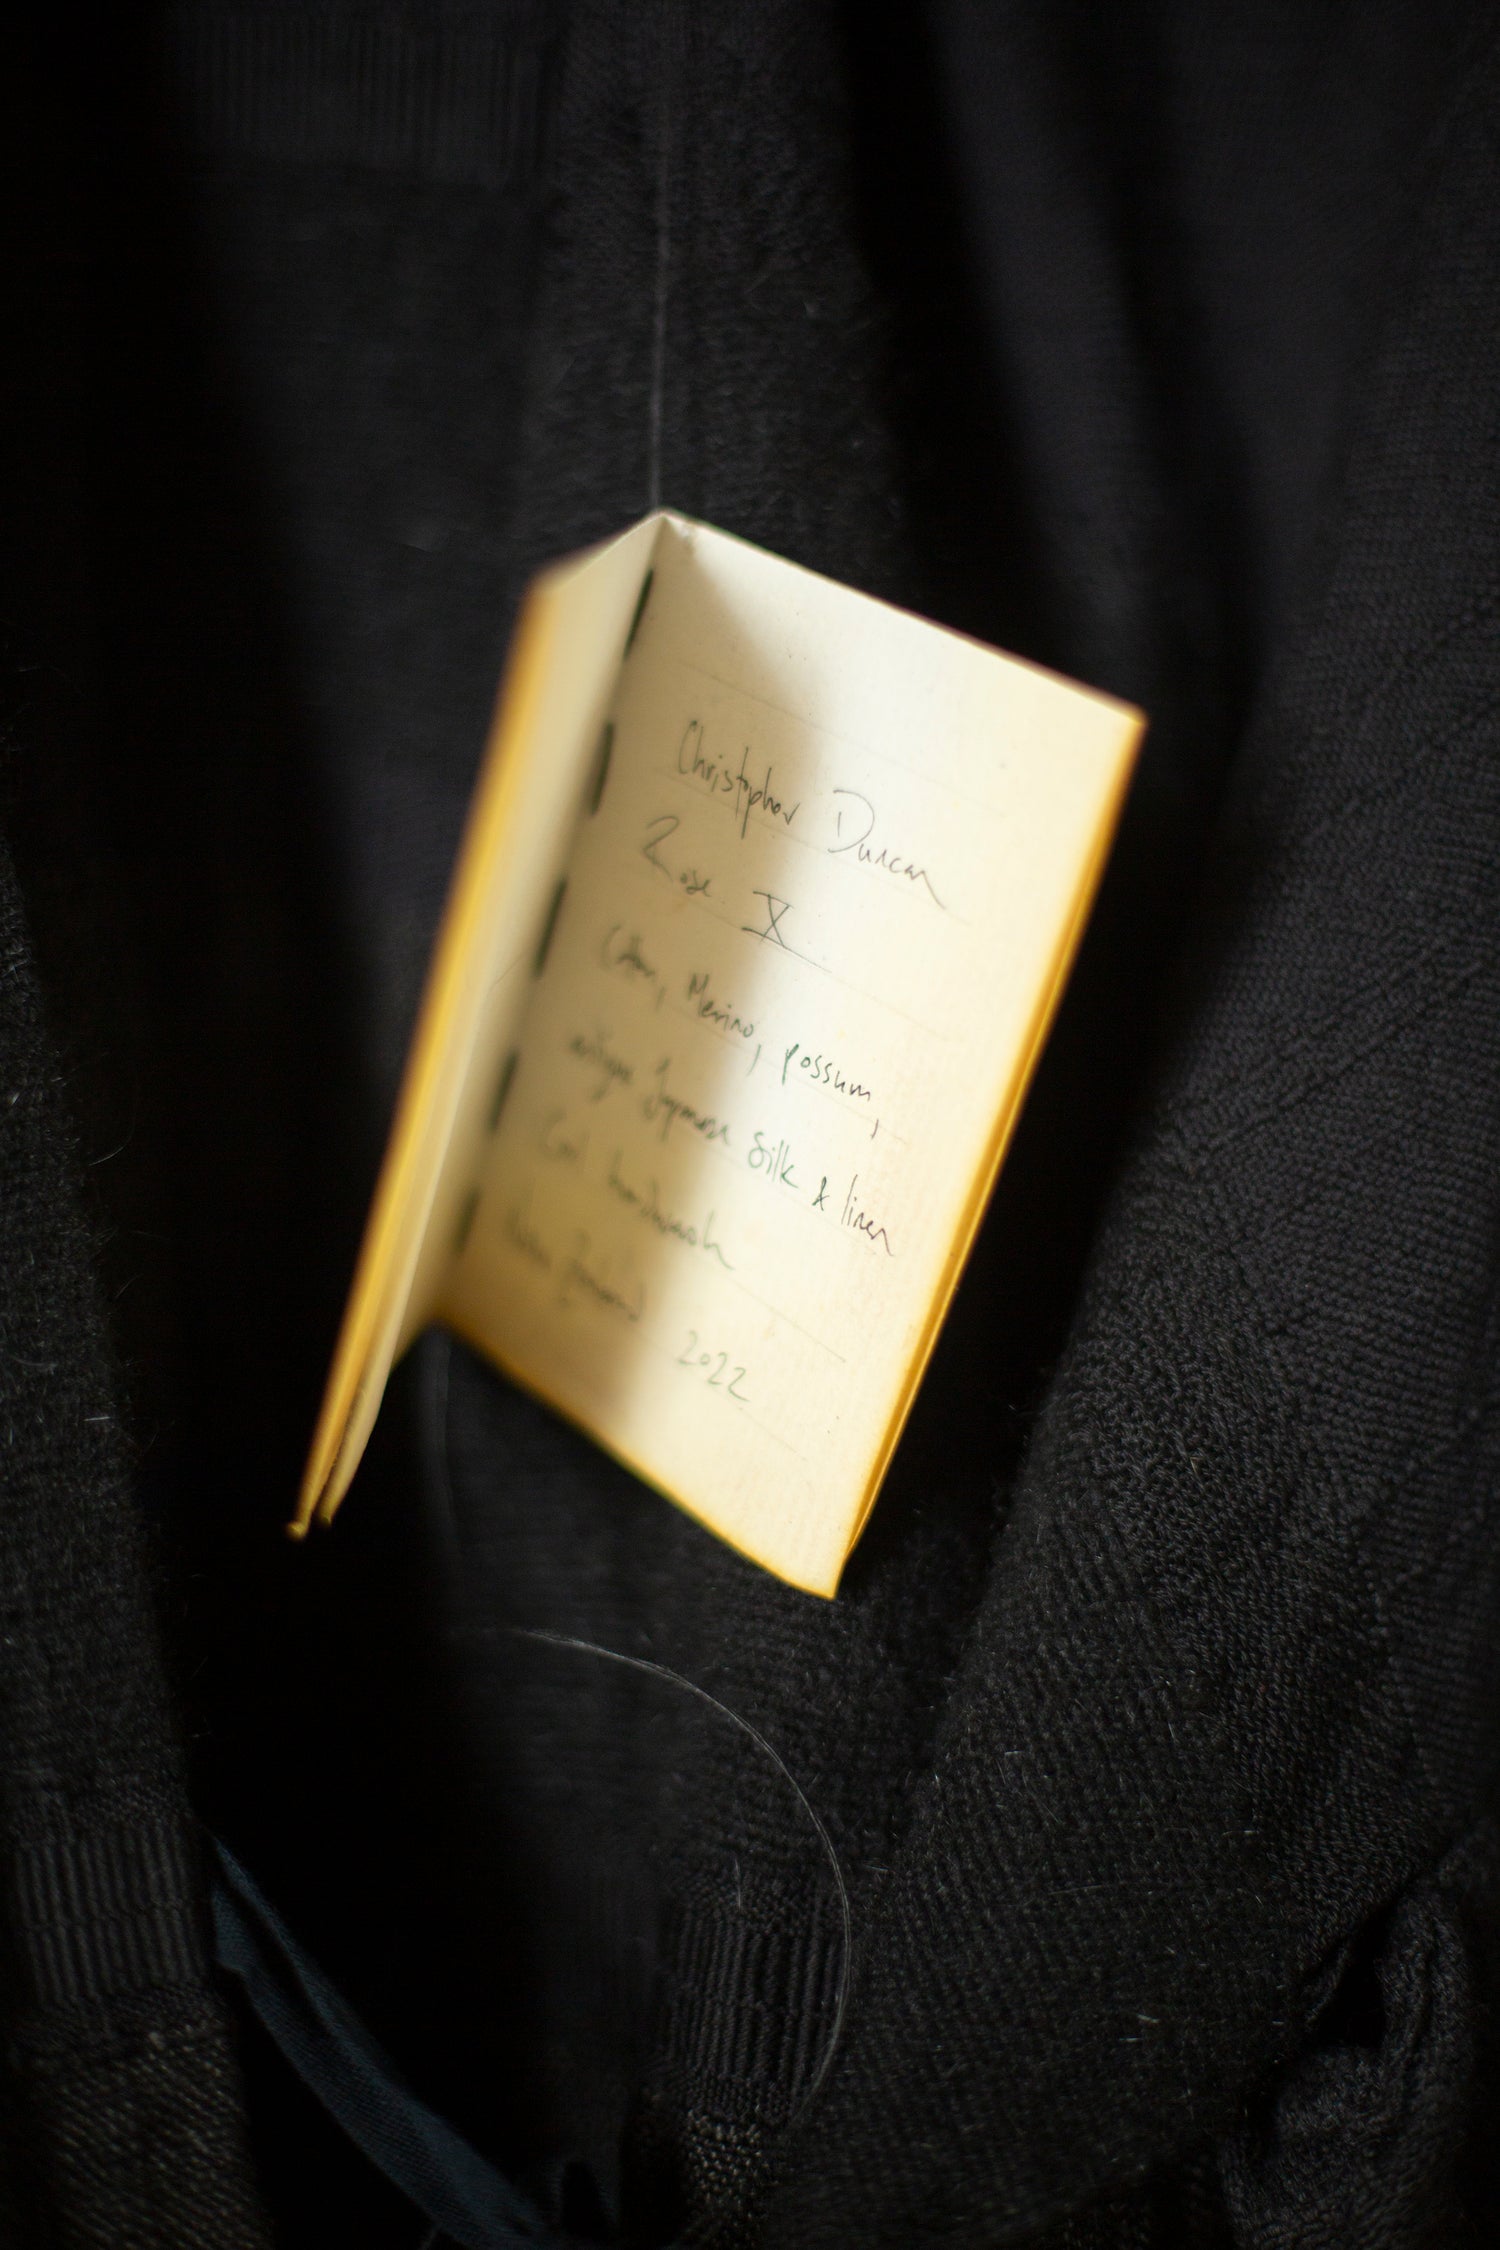 Christopher Duncan
Rose X
Cotton, Merino, possum,
antique Japanese Silk & linen
Cool handwash
2022